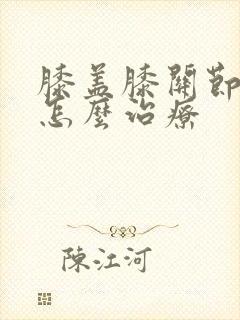 膝盖膝關節
怎麼治療
陳江河